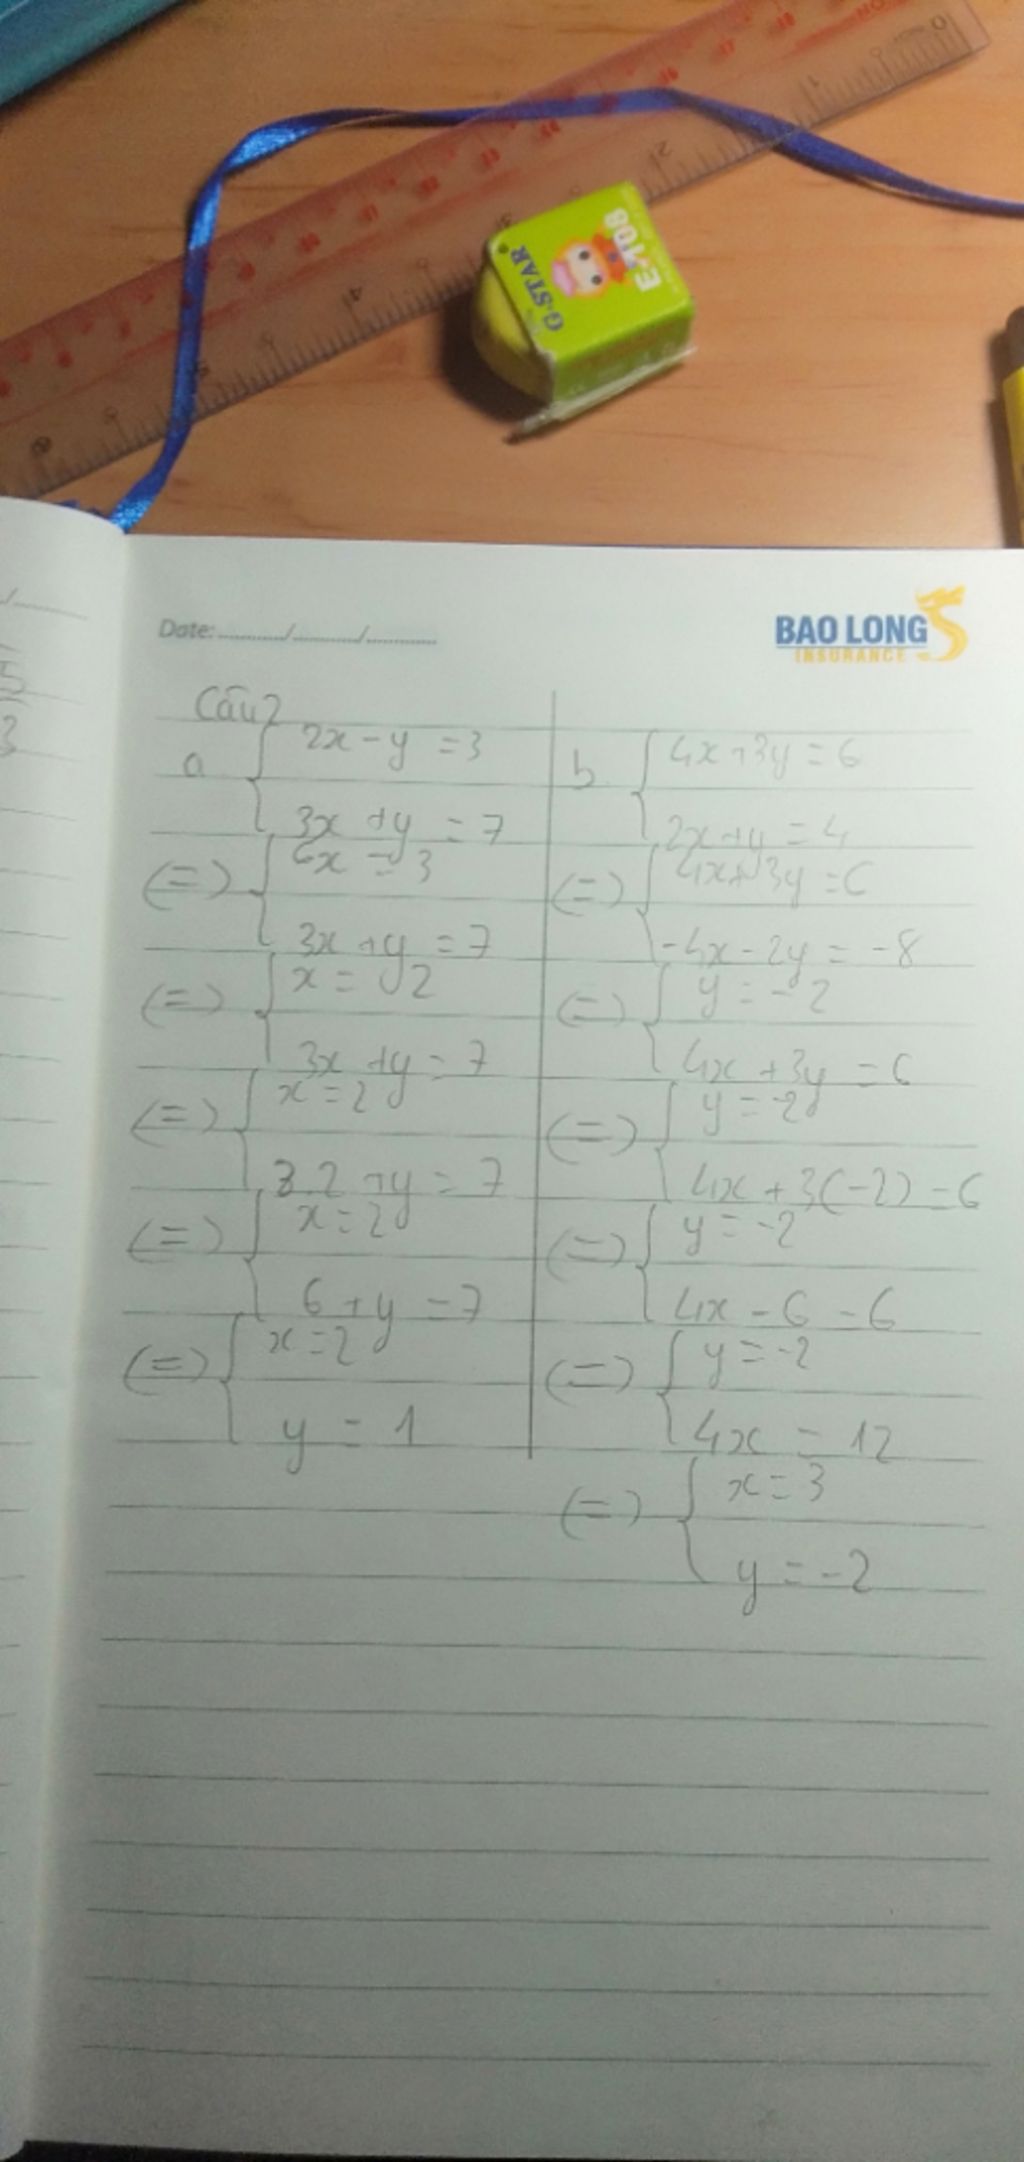 G-STAR
E-108
Date: ........../........../..........
BAO LONG
INSURANCE
Câu 2
a { 2x - y = 3
3x + y = 7
(=) { 6x = 3
3x + y = 7
(=) { x = 2
3x + y = 7
(=) { x = 2
3.2 + y = 7
(=) { x = 2
6 + y = 7
(=) { x = 2
y = 1
b { 4x + 3y = 6
2x + y = 4
(=) { 4x + 3y = 6
-4x - 2y = -8
(=) { y = -2
4x + 3y = 6
(=) { y = -2
4x + 3(-2) = 6
(=) { y = -2
4x - 6 = 6
(=) { y = -2
4x = 12
(=) { x = 3
y = -2